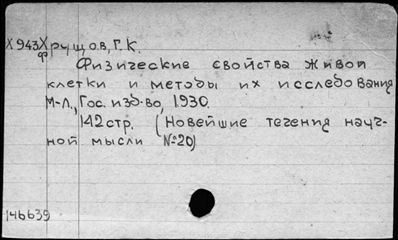 Х943 Хрущов, Г. К.
ф
Физические свойства живой
клетки и методы их исследования
М-Л., Гос. изд-во, 1930.
142 стр. (Новейшие течения науч-
ной мысли №20)
146639